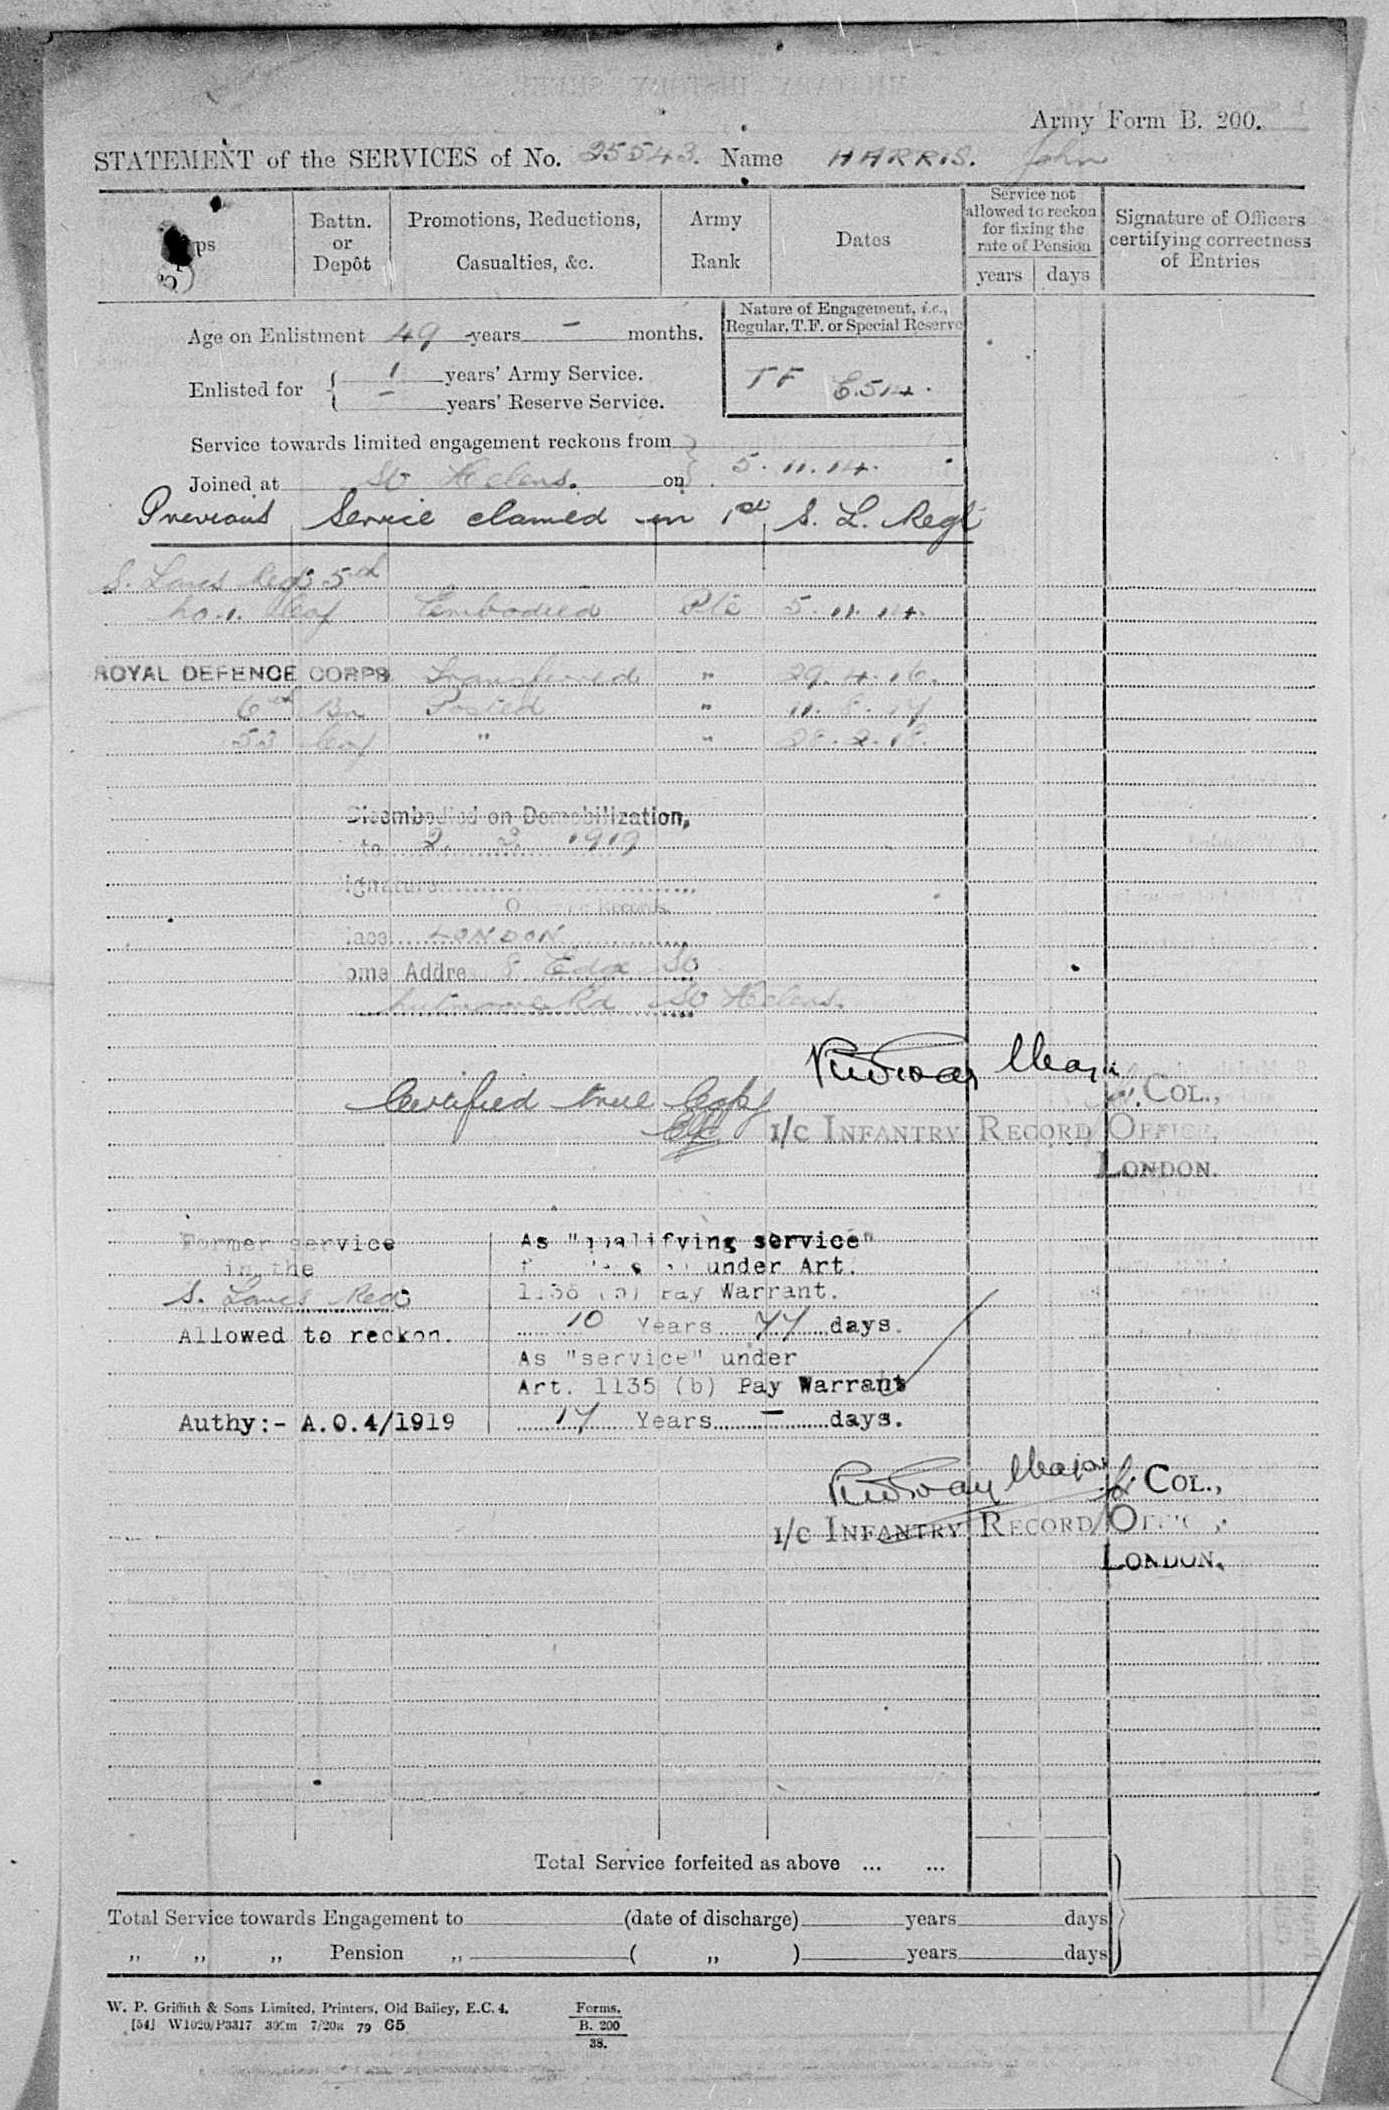 Army Form B. 200.
STATEMENT of the SERVICES of No. 25543. Name HARRIS. John
Battn. or Depôt
Promotions, Reductions, Casualties, &c.
Army Rank
Dates
Service not allowed to reckon for fixing the rate of Pension
years days
Signature of Officers certifying correctness of Entries
Age on Enlistment 49 years - months.
Nature of Engagement, i.e., Regular, T.F. or Special Reserve
Enlisted for 1 years' Army Service.
TF E.514.
- years' Reserve Service.
Service towards limited engagement reckons from
Joined at St Helens. on 5.11.14.
Previous Service claimed in 1st S. L. Regt
S. Lancs Regt 5th
No.1. Coy Embodied Pte 5.11.14.
ROYAL DEFENCE CORPS Transferred " 29.4.16.
6th Bn Posted " 11.8.17
53 Coy " " 28.2.18.
Disembodied on Demobilization,
2. 2. 1919
ignature
O Records.
lace LONDON
ome Addre 8 Edge St
Nutgrove Rd St Helens.
Major
Certified true Copy
for COL.,
I/C INFANTRY RECORD OFFICE,
LONDON.
Former service
in the
S. Lancs Reg
Allowed to reckon.
Authy:- A.O.4/1919
As "qualifying service"
under Art.
(b) Pay Warrant.
10 Years 77 days.
As "service" under
Art. 1135 (b) Pay Warrant
17 Years - days.
Major for COL.,
I/C INFANTRY RECORD OFFICE,
LONDON.
Total Service forfeited as above ... ...
Total Service towards Engagement to (date of discharge) years days
,, ,, ,, Pension ,, ( ,, ) years days
W. P. Griffith & Sons Limited, Printers, Old Bailey, E.C. 4.
[54] W1020/P3317 7/20 79 65
Forms.
B. 200
38.